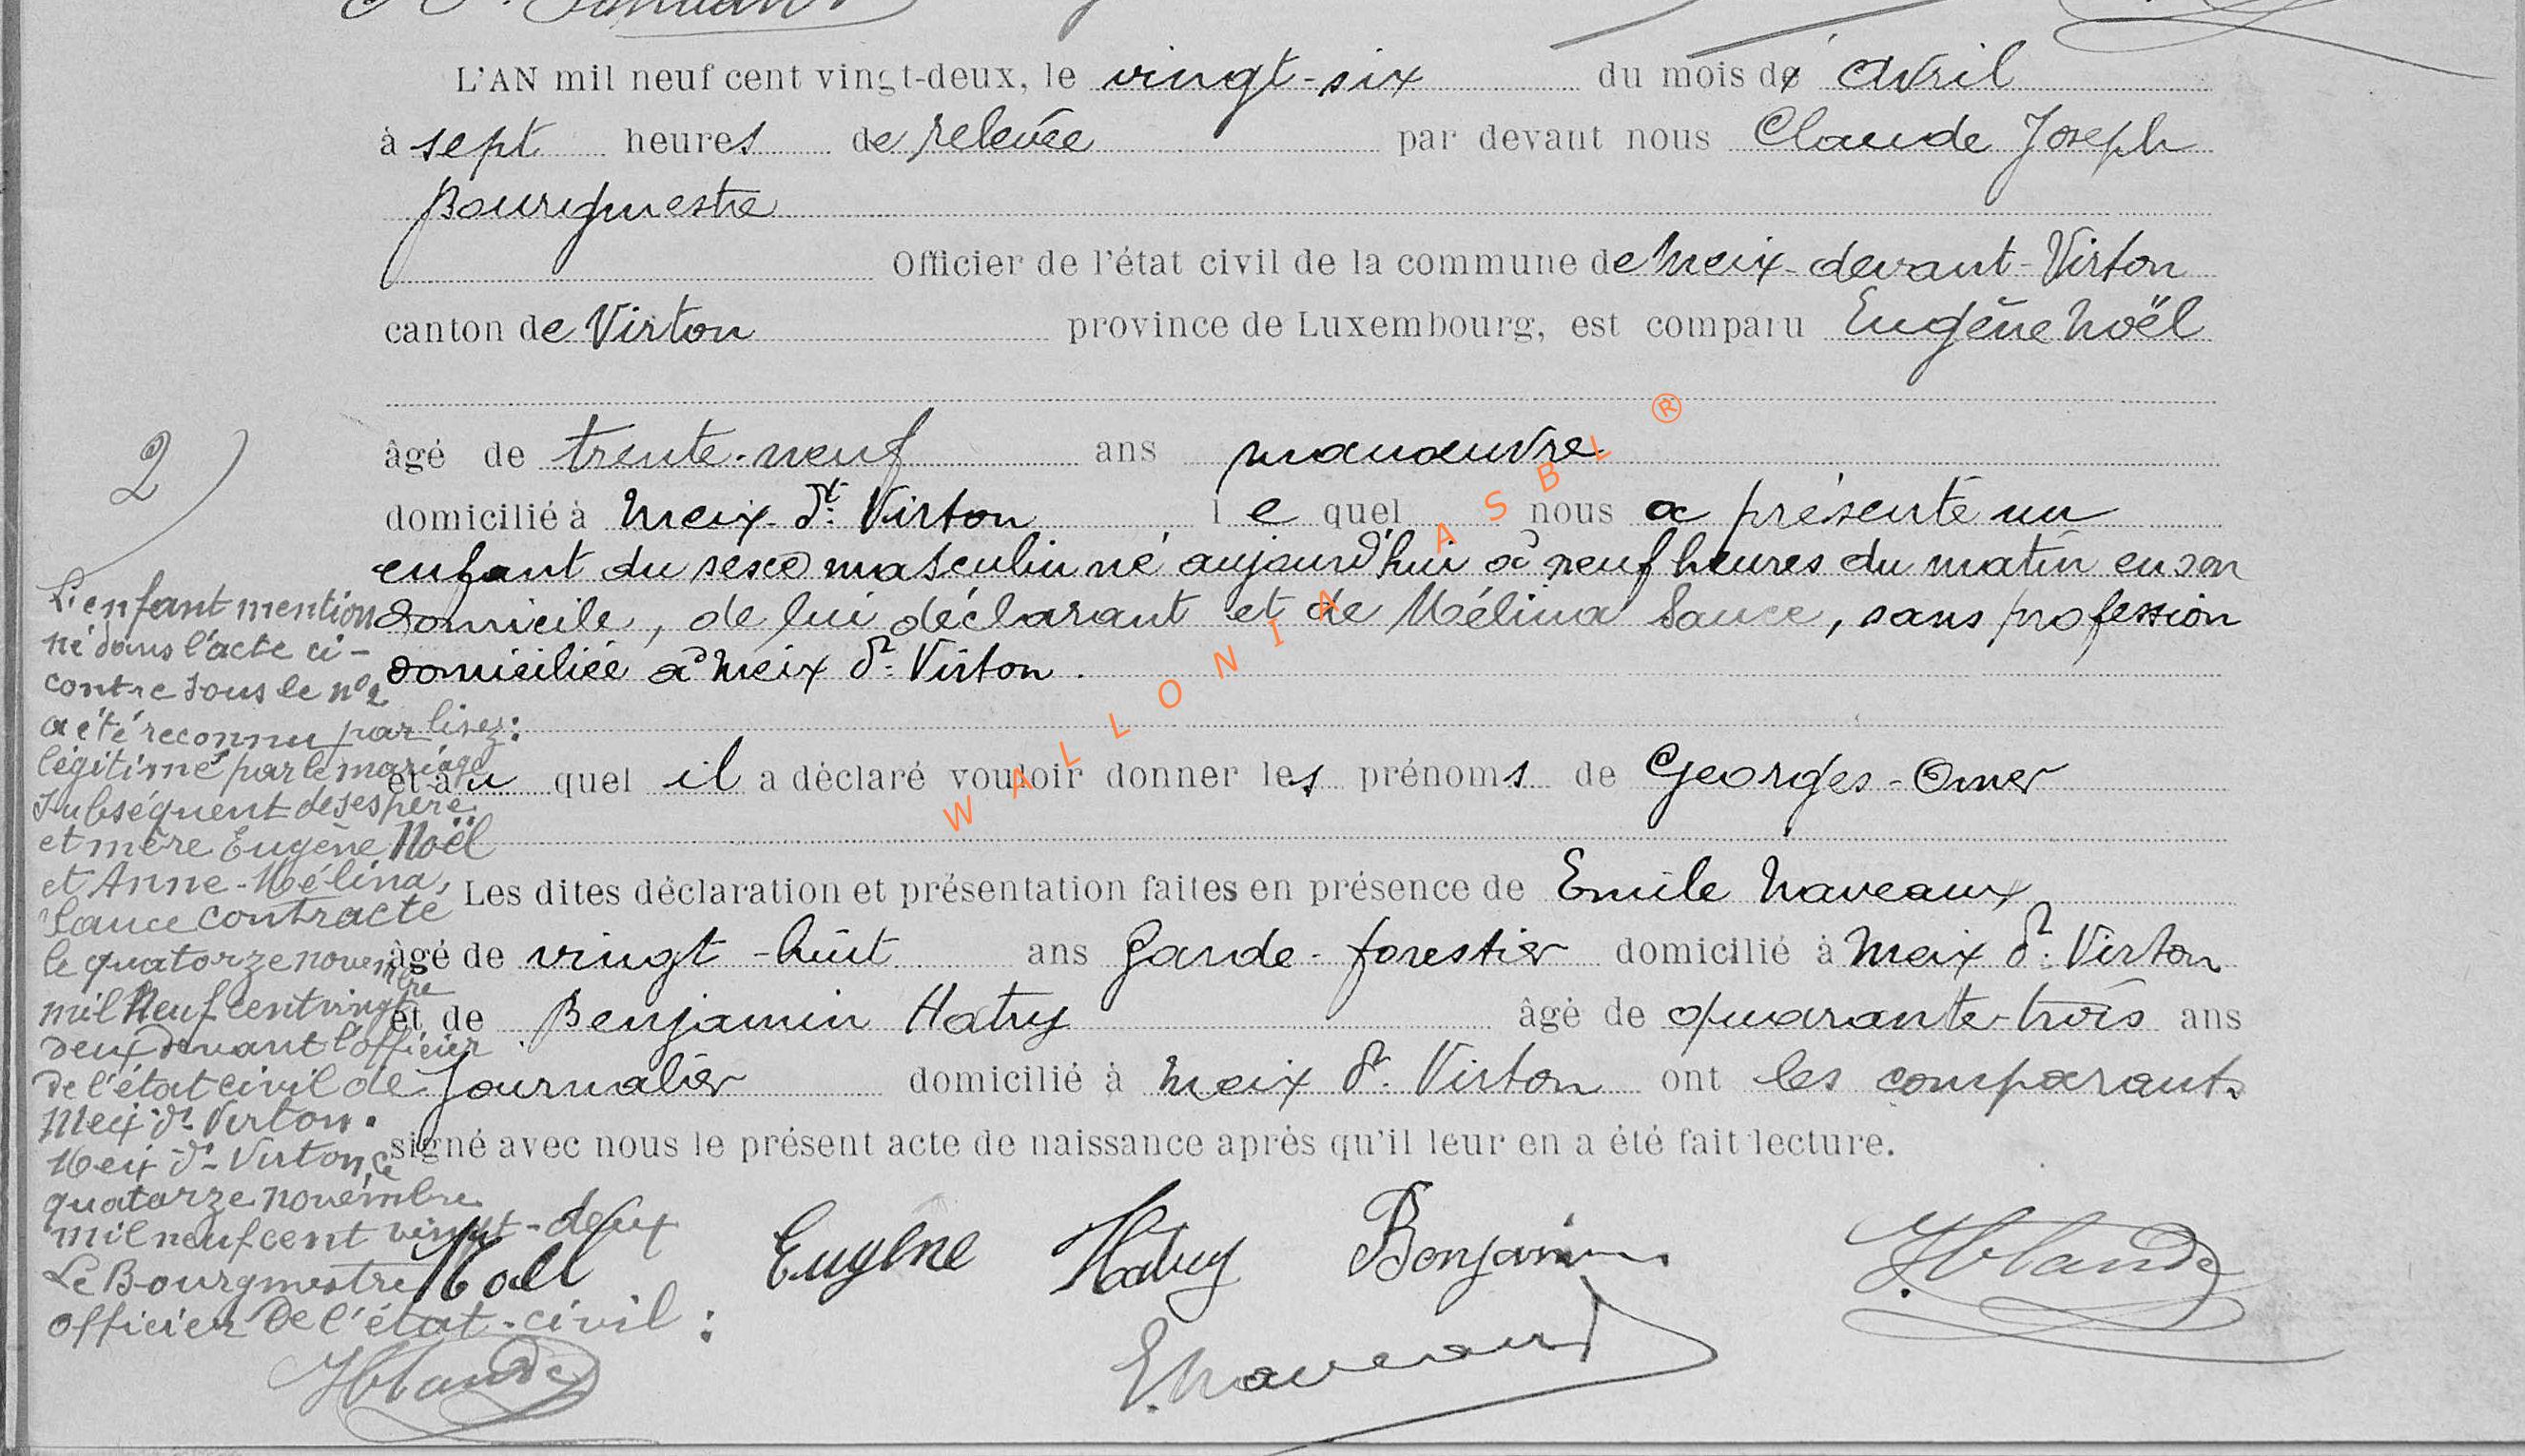 L'AN mil neuf cent vingt-deux, le vingt-six du mois d' avril
à sept heures de relevée par devant nous Claude Joseph
Bourgmestre
Officier de l'état civil de la commune de Meix-devant-Virton
canton de Virton province de Luxembourg, est comparu Eugène Noël
âgé de trente-neuf ans manœuvre
domicilié à Meix-dt Virton lequel nous a présenté un
enfant du sexe masculin né aujourd'hui à neuf heures du matin en son
domicile, de lui déclarant et de Mélina Sauce, sans profession
domiciliée à Meix dt Virton.
et au quel il a déclaré vouloir donner les prénoms de Georges-Omer
Les dites déclaration et présentation faites en présence de Emile Naveaux
âgé de vingt-huit ans Garde-forestier domicilié à Meix dt Virton
et de Benjamin Hatry âgé de quarante-trois ans
Journalier domicilié à Meix dt Virton ont les comparants
signé avec nous le présent acte de naissance après qu'il leur en a été fait lecture.
Noël Eugène Hatry Benjamin JClaude
E. Naveaux
2)
L'enfant mention
né dans l'acte ci-
contre sous le n° 2
a été reconnu par lisez:
légitimé par le mariage
subséquent de ses père
et mère Eugène Noël
et Anne-Mélina,
Sauce contracté
le quatorze novembre
mil neuf cent vingt
deux devant l'officier
de l'état civil de
Meix dt Virton.
Meix dt Virton, le
quatorze novembre
mil neuf cent vingt-deux
Le Bourgmestre
officier de l'état-civil:
JClaude
WALLONIA ASBL ®